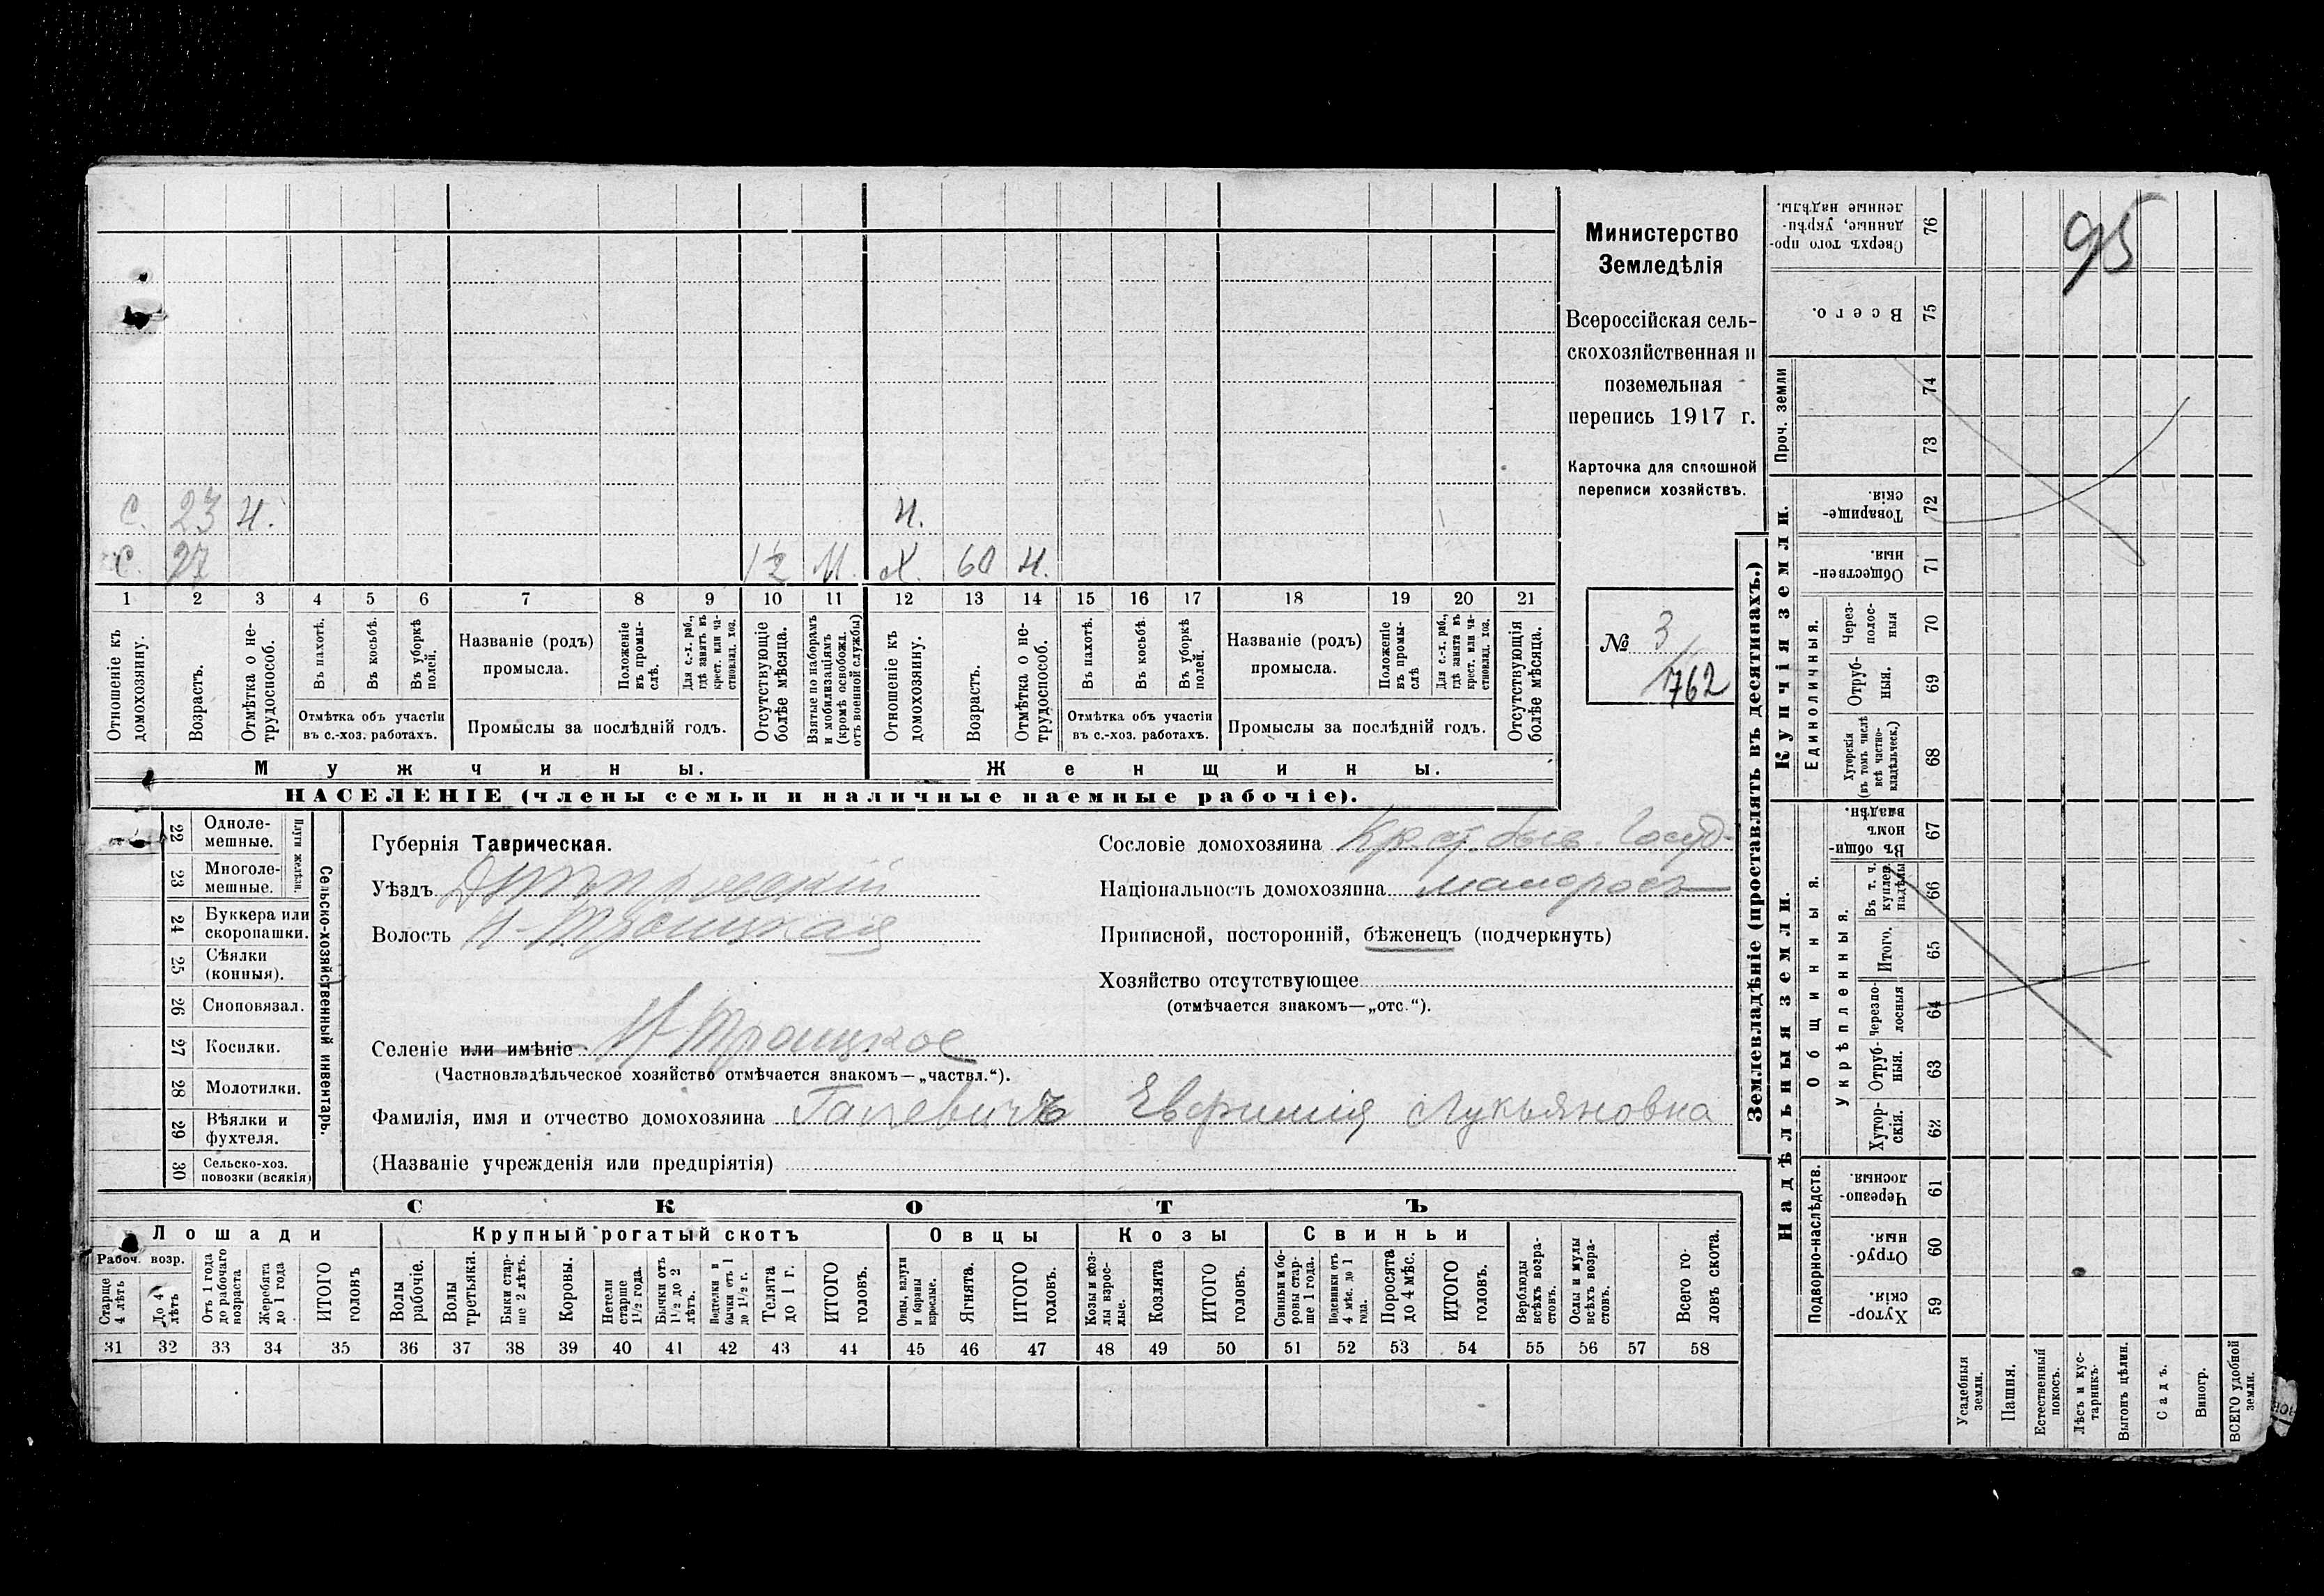 Министерство
Земледѣлія
Всероссійская сель-
скохозяйственная и
поземельная
перепись 1917 г.
Карточка для сплошной
переписи хозяйствъ.
№ 3/1762
95
С. 23 Н. Н.
С. 27 1½ М. Х. 60 Н.
1 2 3 4 5 6 7 8 9 10 11 12 13 14 15 16 17 18 19 20 21
Отношеніе къ домохозяину.
Возрастъ.
Отмѣтка о не-трудоспособ.
Въ пахотѣ.
Въ косьбѣ.
Въ уборкѣ полей.
Отмѣтка объ участіи
въ с.-хоз. работахъ.
Названіе (родъ)
промысла.
Положеніе въ промы-слѣ.
Для с.-х. раб., гдѣ занятъ въ крест. или ча-стновлад. хоз.
Промыслы за послѣдній годъ.
Отсутствующіе болѣе мѣсяца.
Взятые по наборамъ и мобилизаціямъ (кромѣ освобожд. отъ военной службы)
Отношеніе къ домохозяину.
Возрастъ.
Отмѣтка о не-трудоспособ.
Въ пахотѣ.
Въ косьбѣ.
Въ уборкѣ полей.
Отмѣтка объ участіи
въ с.-хоз. работахъ.
Названіе (родъ)
промысла.
Положеніе въ промы-слѣ
Для с.-х. раб., гдѣ занята въ крест. или ча-стновлад. хоз.
Промыслы за послѣдній годъ.
Отсутствующія болѣе мѣсяца.
Мужчины. Женщины.
НАСЕЛЕНІЕ (члены семьи и наличные наемные рабочіе).
Сельско-хозяйственный инвентарь.
Плуги желѣзн.
22 Одноле-мешные.
23 Многоле-мешные.
24 Буккера или скоропашки.
25 Сѣялки (конныя).
26 Сноповязал.
27 Косилки.
28 Молотилки.
29 Вѣялки и фухтеля.
30 Сельско-хоз. повозки (всякія)
Губернія Таврическая.
Уѣздъ Днѣпровскій
Волость Н-Троицкая
Сословіе домохозяина Крест. быв. Госуд.
Національность домохозяина малоросъ
Приписной, посторонній, бѣженецъ (подчеркнуть)
Хозяйство отсутствующее
(отмѣчается знакомъ—„отс.“).
Селеніе или имѣніе Н-Троицкое
(Частновладѣльческое хозяйство отмѣчается знакомъ—„частвл.“).
Фамилія, имя и отчество домохозяина Евфимія Лукьяновна
(Названіе учрежденія или предпріятія)
СКОТЪ
Лошади Крупный рогатый скотъ Овцы Козы Свиньи
Рабоч. возр.
Старше 4 лѣтъ
До 4 лѣтъ
Отъ 1 года до рабочаго возраста
Жеребята до 1 года
ИТОГО головъ
Волы рабочіе.
Волы третьяка.
Быки стар-ше 2 лѣтъ.
Коровы.
Нетели старше 1½ года.
Бычки отъ 1½ до 2 лѣтъ.
бычки отъ 1 до 1½ г.
Телята до 1 г.
ИТОГО головъ.
Овцы, валухи и бараны взрослые.
Ягнята.
ИТОГО головъ.
Козы и коз-лы взрос-лые.
Козлята
ИТОГО головъ.
Свиньи и бо-ровы стар-ше 1 года.
Подсвинки отъ 4 мѣс. до 1 года.
Поросята до 4 мѣс.
ИТОГО головъ.
Верблюды всѣхъ возра-стовъ.
Ослы и мулы всѣхъ возра-стовъ.
Всего го-ловъ скота.
31 32 33 34 35 36 37 38 39 40 41 42 43 44 45 46 47 48 49 50 51 52 53 54 55 56 57 58
Землевладѣніе (проставлять въ десятинахъ.)
Купчія земли.
Надѣльныя земли.
Сверхъ того про-данные, укрѣп-ленные надѣлы. 76
Всего. 75
Проч. земли
74
73
Товарище-скія. 72
Обществен-ныя. 71
Единоличныя.
Через-полос-ныя 70
Отруб-ныя. 69
Хуторскія (въ томъ числѣ всѣ частно-владѣльческ.) 68
Общинныя.
Въ общин-номъ владѣн. 67
Укрѣпленныя.
Въ т. ч. куплен. надѣлы 66
Итого. 65
Черезпо-лосныя 64
Отруб-ныя. 63
Хутор-скія. 62
Подворно-наслѣдств.
Черезпо-лосныя. 61
Отруб-ныя. 60
Хутор-скія. 59
Усадебныя земли.
Пашня.
Естественный покосъ.
Лѣсъ и кус-тарникъ.
Выгонъ цѣлин.
Садъ.
Виногр.
ВСЕГО удобной земли.